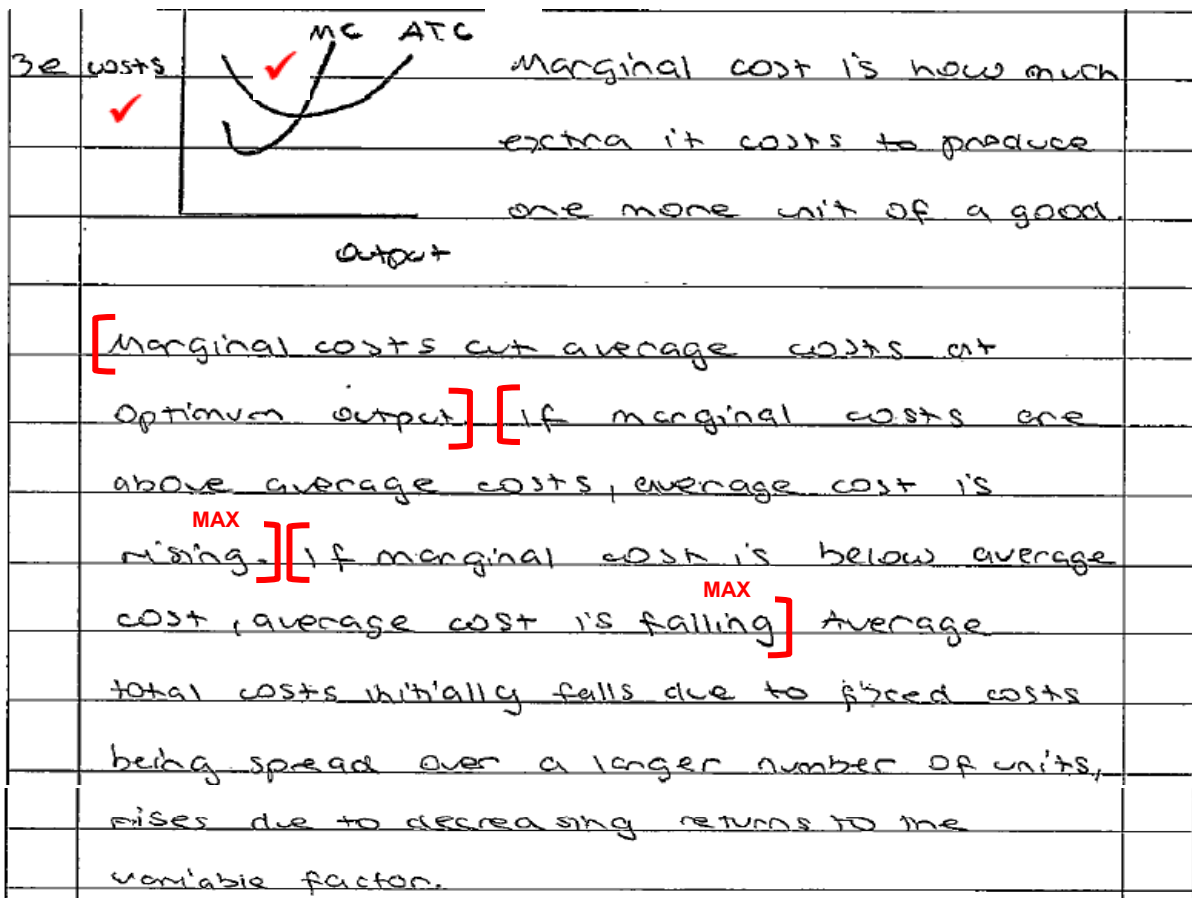 MC ATC
3e costs Marginal cost is how much
extra it costs to produce
one more unit of a good.
output
Marginal costs cut average costs at
optimum output. If marginal costs are
above average costs, average cost is
MAX
rising. If marginal cost is below average
MAX
cost, average cost is falling Average
total costs initially falls due to fixed costs
being spread over a larger number of units,
rises due to decreasing returns to the
variable factor.